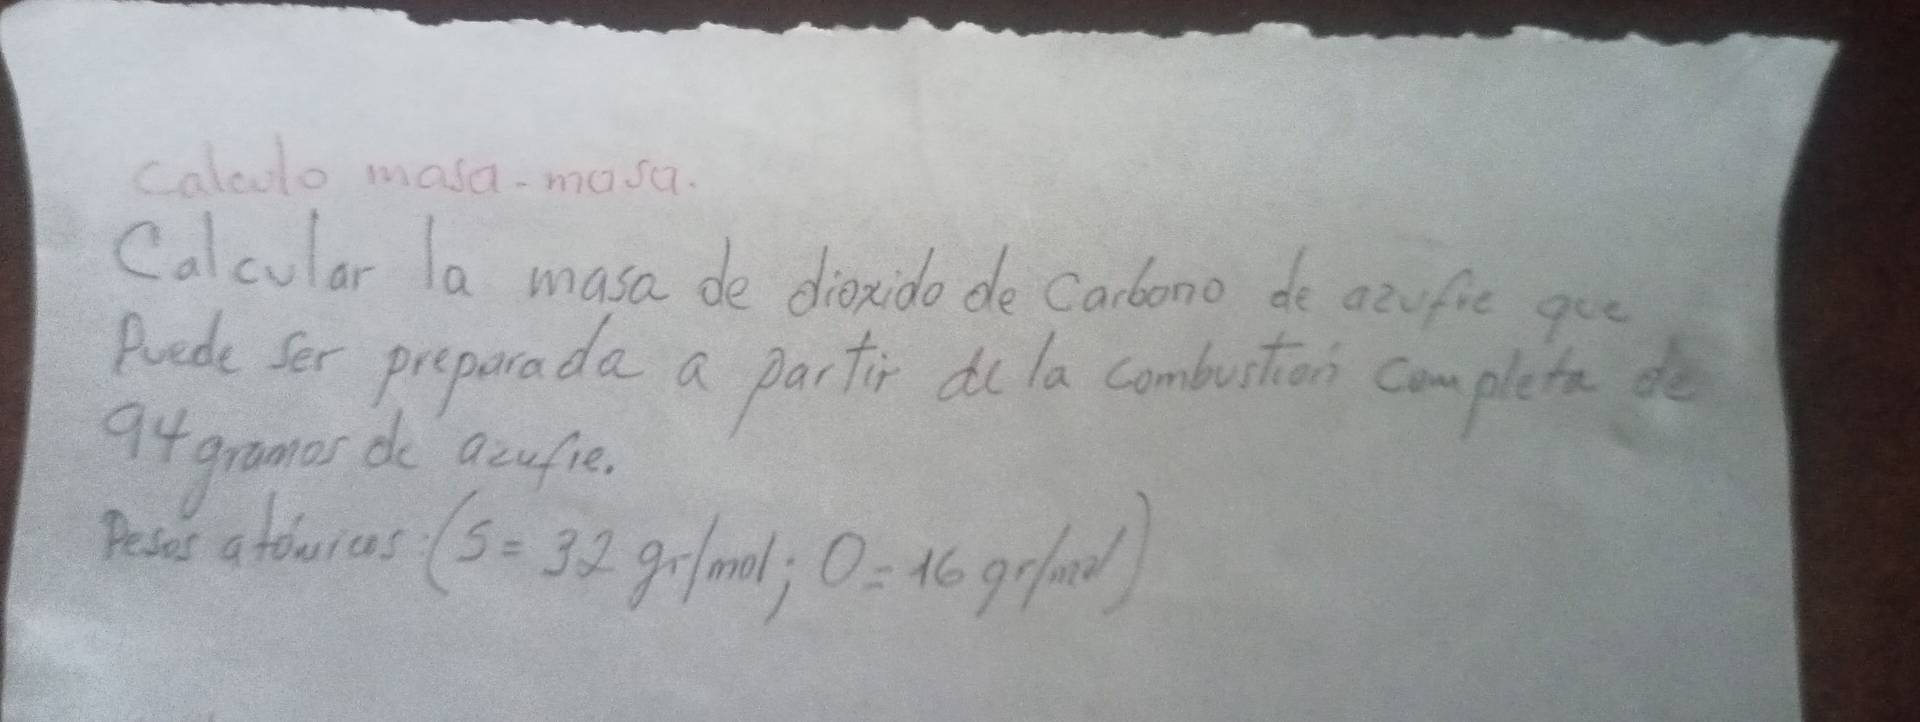 Calculo masa-masa.
Calcular la masa de dioxido de Carbono de azufre que
Puede ser preparada a partir de la combustion completa de
94 gramos de azufre.
Pesos atómicos: (S = 32 gr/mol; O = 16 gr/mol)